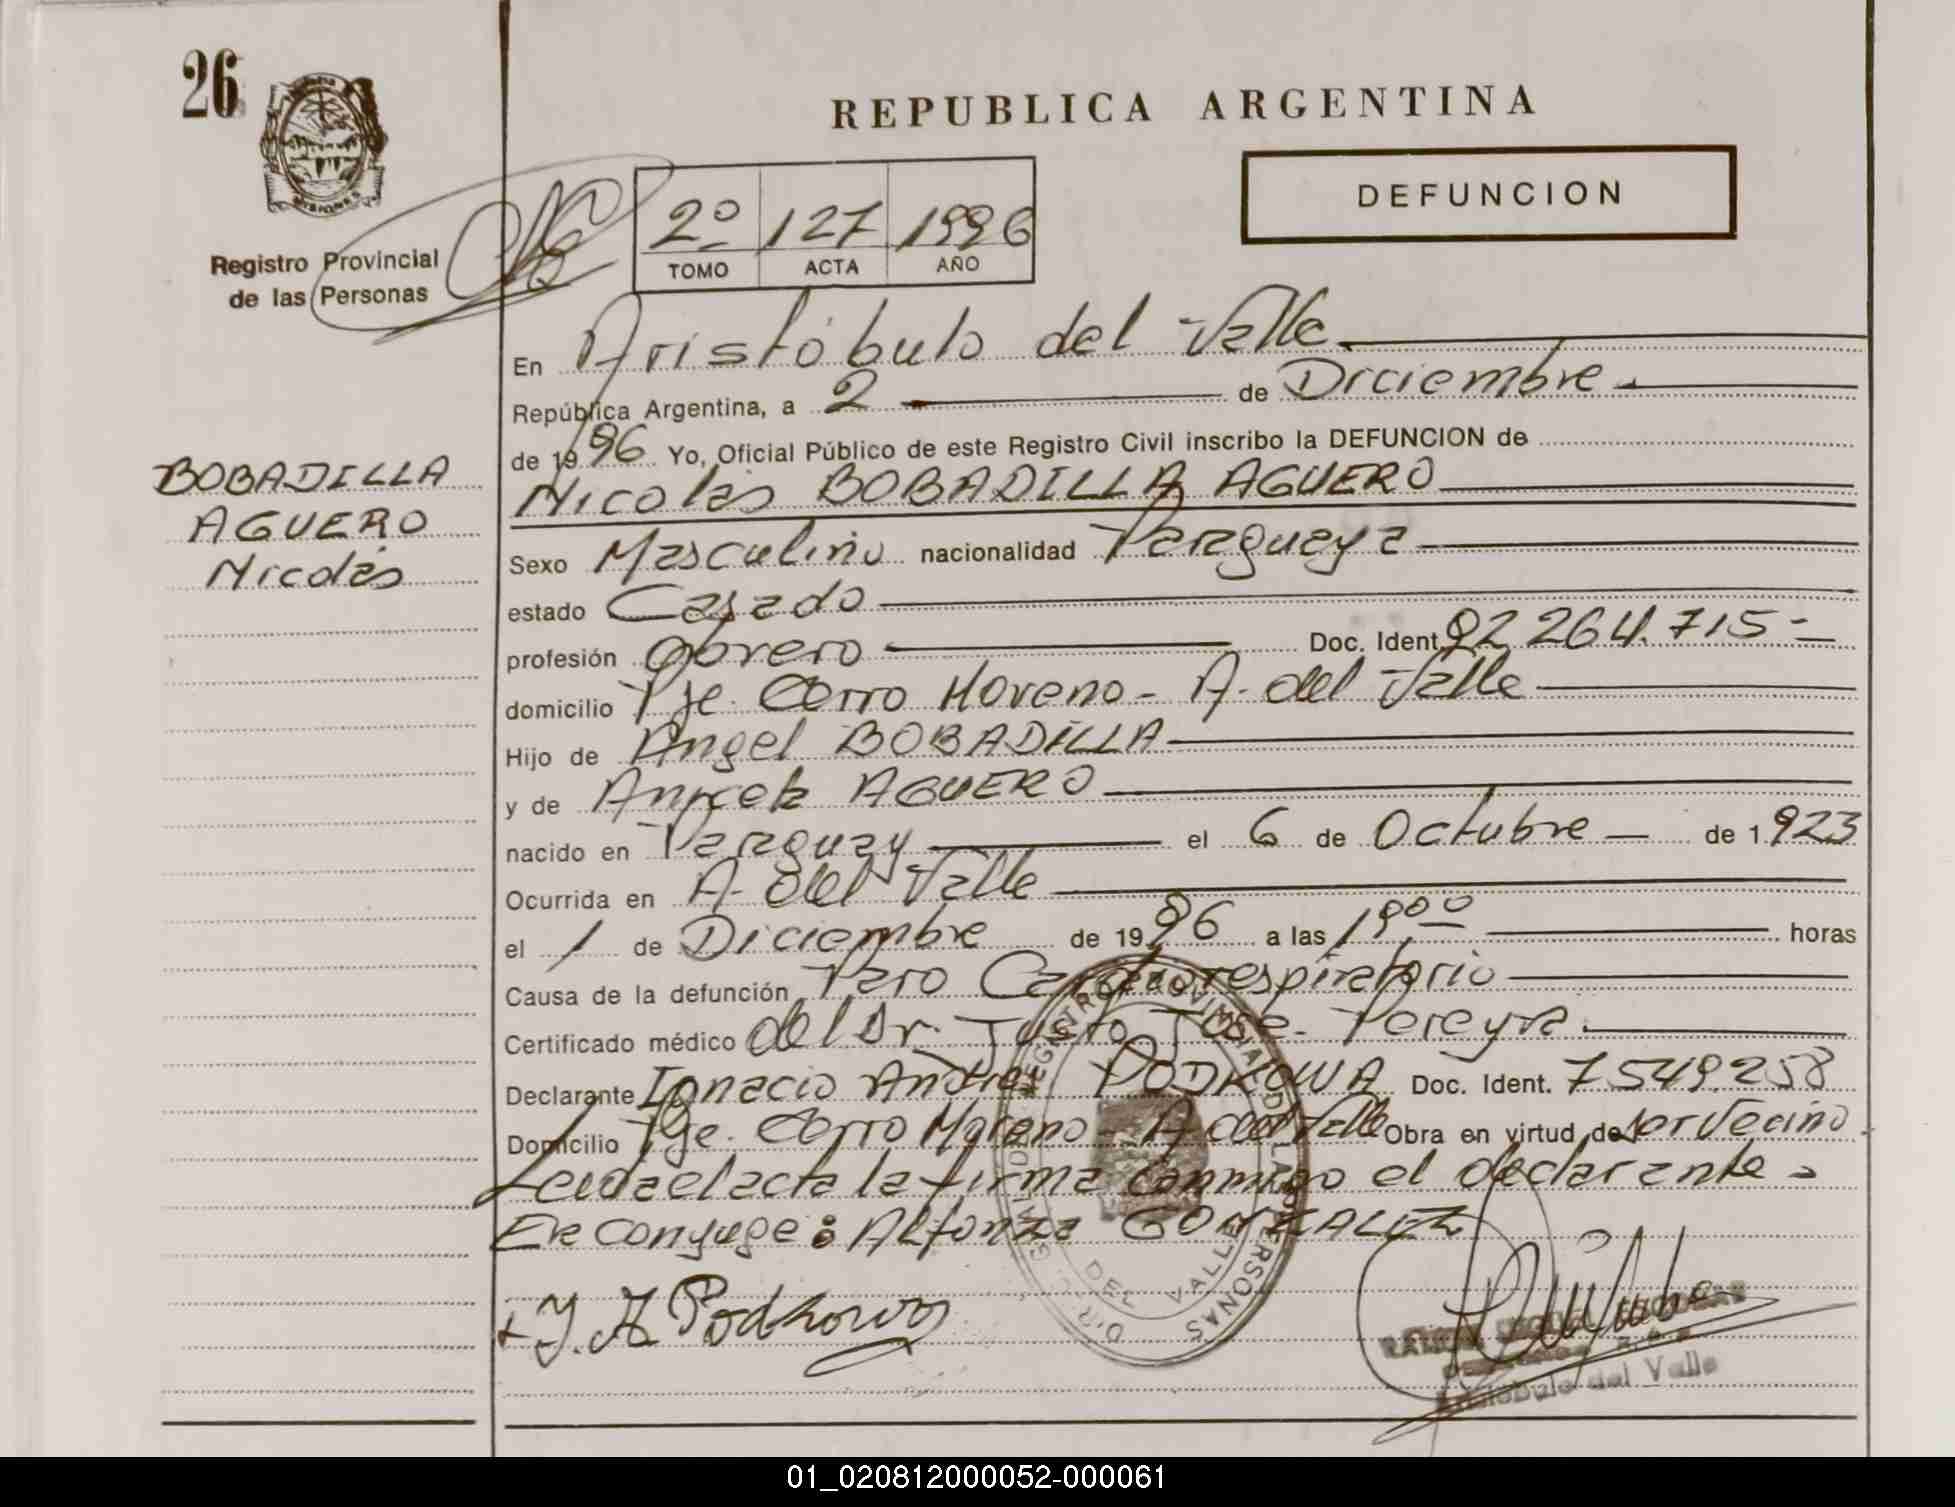 26
MISIONES
Registro Provincial
de las Personas
REPUBLICA ARGENTINA
DEFUNCION
2º 127 1996
TOMO ACTA AÑO
BOBADILLA
AGUERO
Nicolás
En Aristóbulo del Valle
República Argentina, a 2 de Diciembre
de 1996 Yo, Oficial Público de este Registro Civil inscribo la DEFUNCION de
Nicolás BOBADILLA AGUERO
Sexo Masculino nacionalidad Paraguaya
estado Casado
profesión Obrero Doc. Ident. 92 264.715-
domicilio Pje. Cerro Moreno - A. del Valle
Hijo de Angel BOBADILLA
y de AGUERO
nacido en Paraguay el 6 de Octubre de 1.923
Ocurrida en A. del Valle
el 1 de Diciembre de 1996 a las horas
Causa de la defunción Paro Cardiorespiratorio
Certificado médico del Dr. Justo José Pereyra.
Declarante Ignacio Andrés PODKOWA Doc. Ident. 7549.258
Domicilio Pje. Cerro Moreno - A. del Valle Obra en virtud de ser Vecino.
Leida el acta la firma conmigo el declarante.
Conyuge: Alfonza GONZALEZ
I. A. Podkowa
DEL VALLE
Aristobulo del Valle
01_020812000052-000061